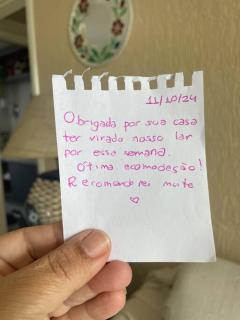 11/10/24
Obrigada por sua casa
ter virado nosso lar
por essa semana.
Ótima acomodação!
Recomendarei muito
♡